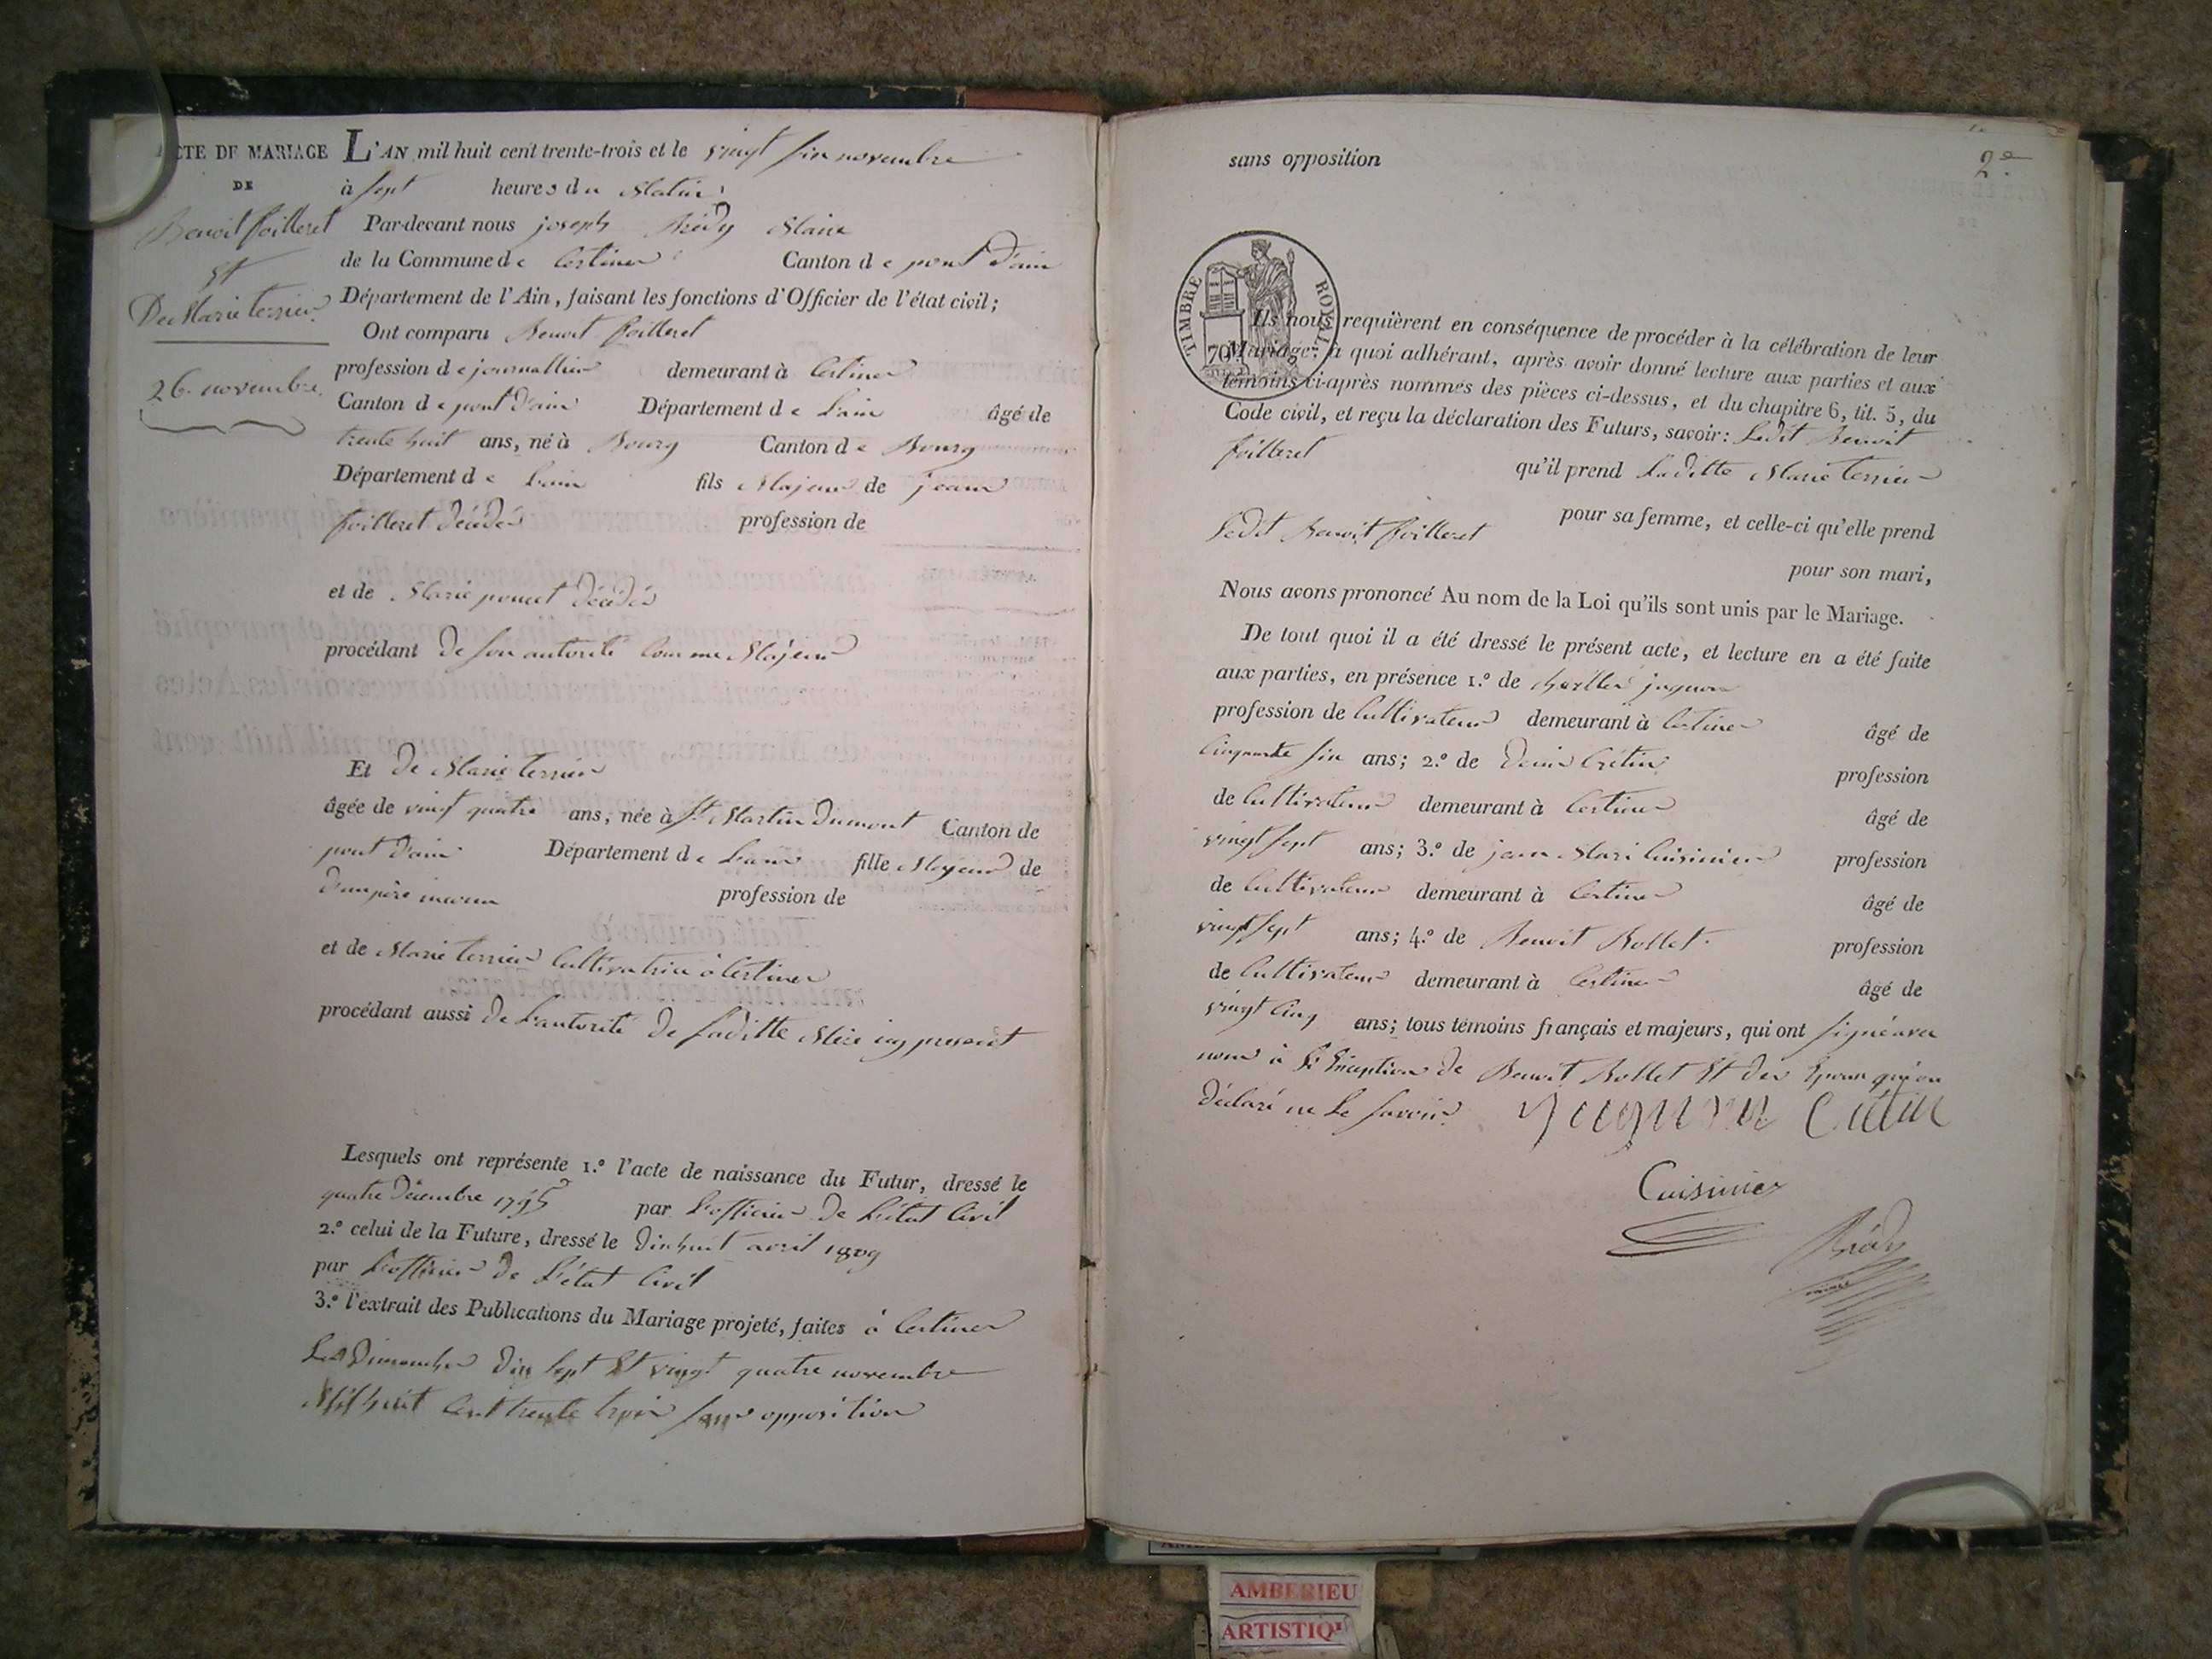 ACTE DE MARIAGE
DE
Benoit foilleret
Et
De Marie terrier
26 novembre
L'AN mil huit cent trente-trois et le vingt six novembre
à sept heures du Matin
Par-devant nous joseph Maire
de la Commune de Certines Canton de pont D'ain
Département de l'Ain, faisant les fonctions d'Officier de l'état civil;
Ont comparu Benoit foilleret
profession de journallier demeurant à Certines
Canton de pont D'ain Département de L'ain âgé de
trente huit ans, né à Bourg Canton de Bourg
Département de L'ain fils Majeur de jean
foilleret décédé profession de
et de Marie poncet décédé
procédant de son autorité Comme Majeur
Et De Marie terrier
âgée de vingt quatre ans, née à St Martin Dumont Canton de
pont D'ain Département de L'ain fille Majeur de
D'un père inconu profession de
et de Marie terrier Cultivatrice à Certines
procédant aussi De L'autorité De saditte Mère icy present
Lesquels ont représenté 1.º l'acte de naissance du Futur, dressé le
quatre Décembre 1795 par L'officier De L'état Civil
2.º celui de la Future, dressé le Dixhuit avril 1809
par L'officier De L'état Civil
3.º l'extrait des Publications du Mariage projeté, faites à Certines
Les Dimanches Dix sept Et vingt quatre novembre
Mil huit Cent trente trois sans opposition
2e
sans opposition
TIMBRE ROYAL
70
Ils nous requièrent en conséquence de procéder à la célébration de leur
Mariage; à quoi adhérant, après avoir donné lecture aux parties et aux
témoins ci-après nommés des pièces ci-dessus, et du chapitre 6, tit. 5, du
Code civil, et reçu la déclaration des Futurs, savoir: Ledit Benoit
foilleret qu'il prend Laditte Marie terrier
pour sa femme, et celle-ci qu'elle prend
Ledit Benoit foilleret
pour son mari,
Nous avons prononcé Au nom de la Loi qu'ils sont unis par le Mariage.
De tout quoi il a été dressé le présent acte, et lecture en a été faite
aux parties, en présence 1.º de jagnon
profession de Cultivateur demeurant à Certines âgé de
Cinquante six ans; 2.º de Denis Crétin profession
de Cultivateur demeurant à Certines âgé de
vingt sept ans; 3.º de jean Marie Cuisinier profession
de Cultivateur demeurant à Certines âgé de
vingt sept ans; 4.º de Benoit Bollet profession
de Cultivateur demeurant à Certines âgé de
vingt Cinq ans; tous témoins français et majeurs, qui ont signé avec
nous à de Benoit Bollet Et des Epoux qui on
Déclaré ne Le savoir
Crétin
Cuisinier
AMBERIEU
ARTISTIQ